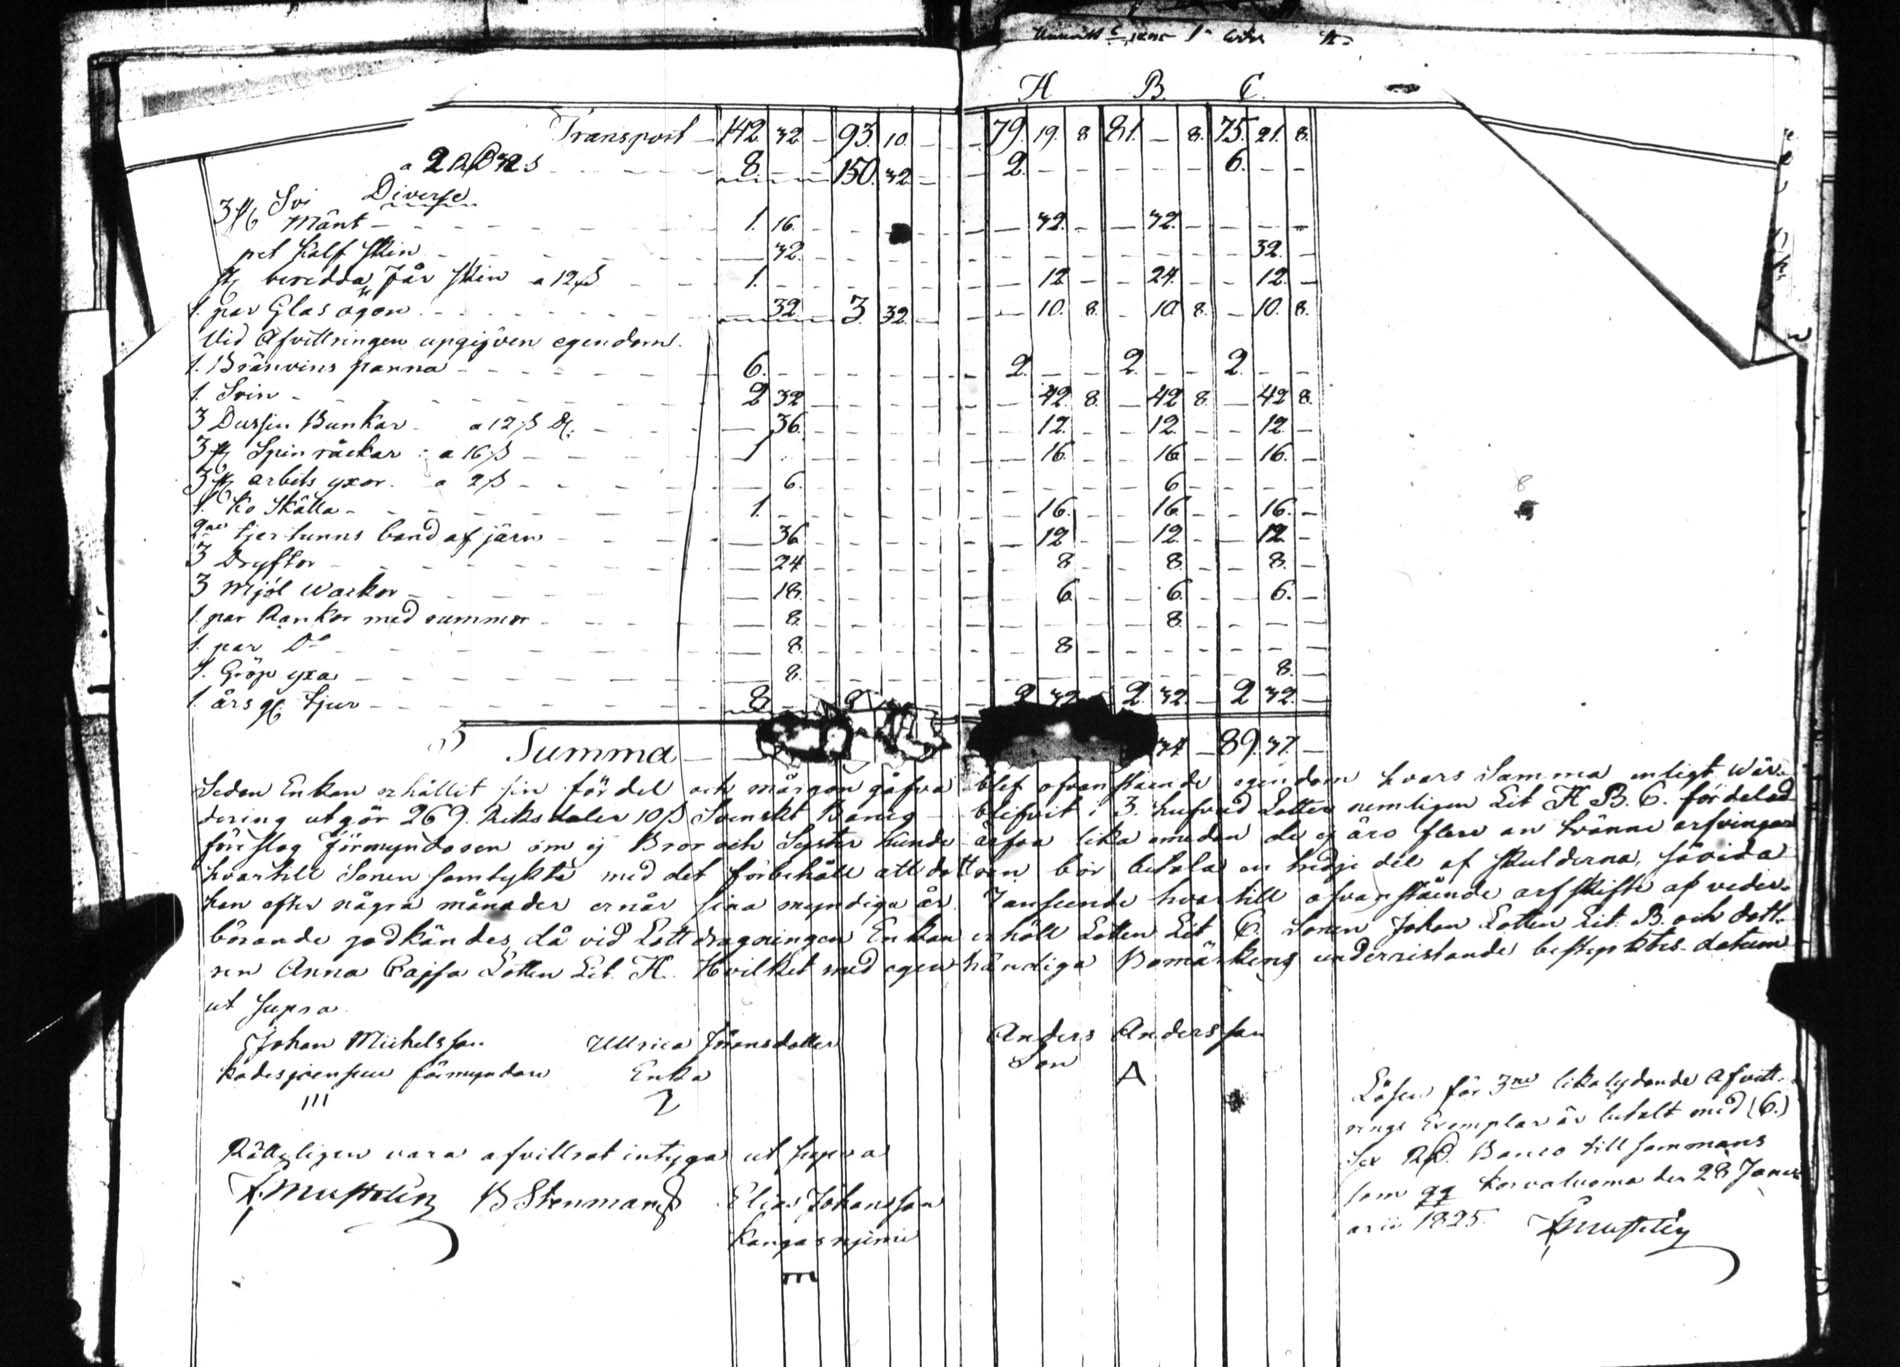 A B. C.
Transport 142. 32. 93. 10. 79. 19. 8 81. 8. 75. 21. 8.
8. 150. 32 2. 6.
Diverse
Månt 1. 16. 32. 32.
Kalf skin 32. 32.
beredda Får skin a 12 ß 1. 12 24. 12.
1. par Glas ögon 32. 3. 32 10. 8. 10 8. 10. 8.
Vid Afvittringen upgifven egendom.
1. Bränvins panna 6. 2. 2. 2.
1. Svin 2 32 42. 8. 42 8. 42 8.
3 Dussin Bunkar a 12 ß 36. 12. 12. 12
3 st Spinråckar a 16 ß 1 16. 16 16.
3 st arbets yxor a 2 ß 6. 6.
1. Ko Skälla 1. 16. 16 16.
tjer tunns band af järn 36 12 12. 12
3 Dryftor 24 8 8. 8.
3 Mjöl 18. 6 6. 6.
1. par Rankor med 8. 8.
1. par Do 8. 8
1. Gröp yxa 8. 8.
1. års tjur 8 2 32 2. 32 2 32.
Summa 34 89. 37.
Sedan Enkan erhållit sin fördel och morgon gåfva blef ofvanstående egendom hvars Summa enligt Wär-
dering utgör 269. Riksdaler 10 ß Svenskt Banco blifvit i 3. hufvud Lotter nemligen Lit A. B. C. fördelad
förslog Förmyndaren om ej Bror och Syster kunde ärfva lika emedan de ej äro flere än tvänne arfvingar
hvartill Sonen samtykte med det förbehåll att dottren bör betala en tredje del af skulderna, såvida
han efter några månader ernår sina myndiga år. Jemseende hvartill ofvanstående arfskifte af veder-
börande godkändes, då vid Lottdragningen Enkan erhöll Lotten Lit C. Sonen Johan Lotten Lit. B. och dott-
ren Anna Cajsa Lotten Lit. A. Hvilket med egenhändiga Bomärkens underristande bestyrktes. datum
ut supra
Johan Michelsson Ullrica Jöransdotter Anders Andersson
förmyndare Enka Son
III A
Rätteligen vara afvittrat intyga ut supra
B Stenman Elias Johansson
Kangasnjemi
Lösen för 3ne likalydande Afvitt-
rings Exemplar är betalt med (6.)
Sex RD. Banco tillsammans
som qq Korvaluoma den 28 Janu-
arii 1825.